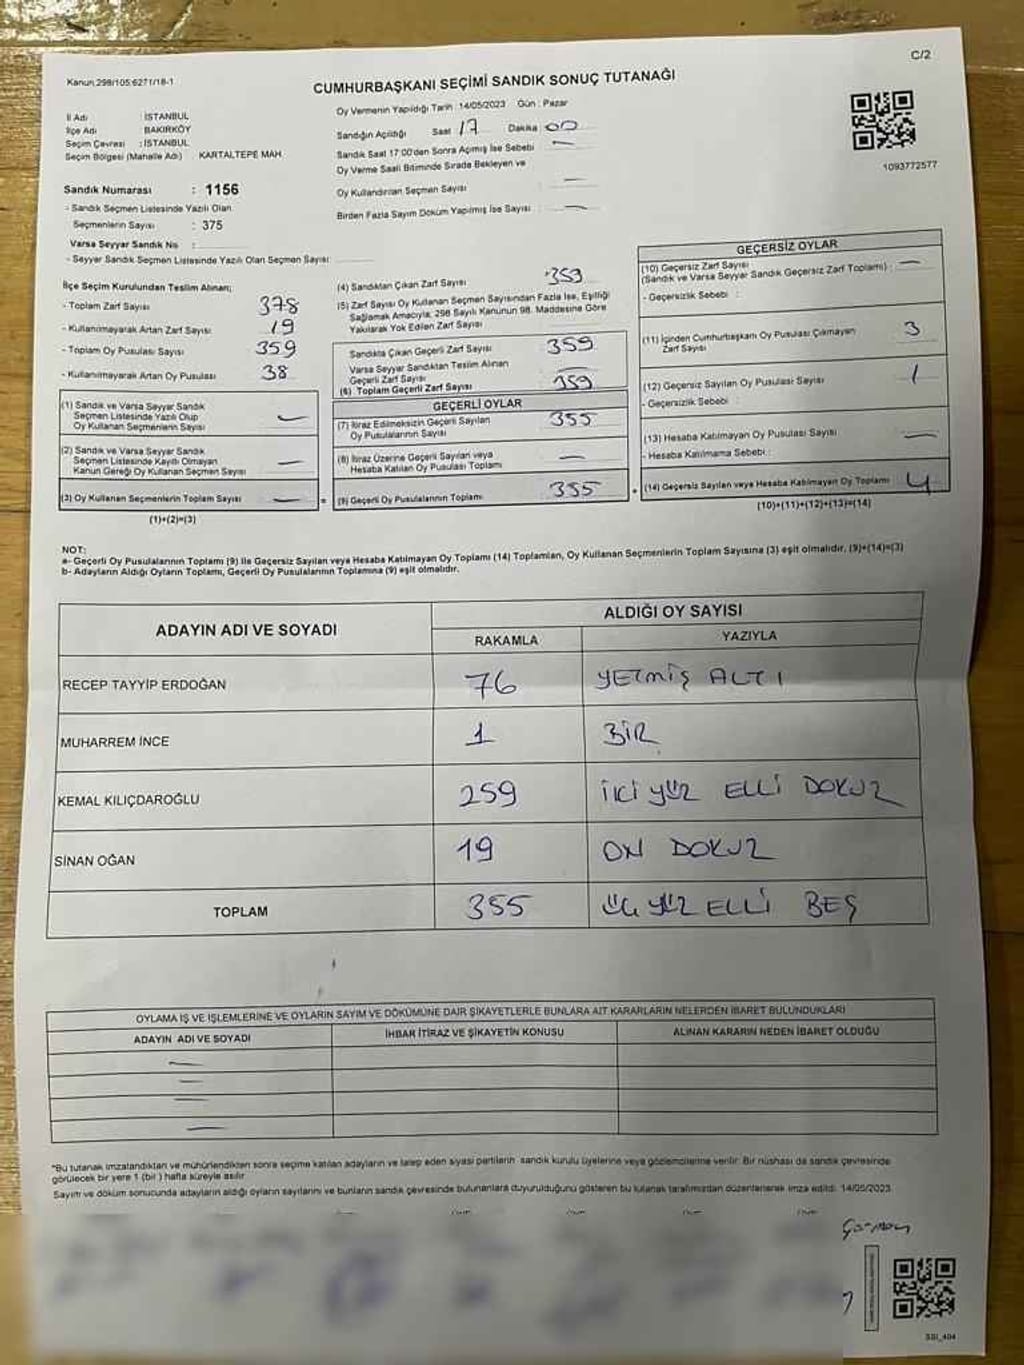 C/2
Kanun:298/105:6271/18-1
CUMHURBAŞKANI SEÇİMİ SANDIK SONUÇ TUTANAĞI
İl Adı : İSTANBUL
İlçe Adı : BAKIRKÖY
Seçim Çevresi : İSTANBUL
Seçim Bölgesi (Mahalle Adı) KARTALTEPE MAH.
Sandık Numarası : 1156
- Sandık Seçmen Listesinde Yazılı Olan
Seçmenlerin Sayısı : 375
Varsa Seyyar Sandık No :
- Seyyar Sandık Seçmen Listesinde Yazılı Olan Seçmen Sayısı:
Oy Vermenin Yapıldığı Tarih : 14/05/2023 Gün : Pazar
Sandığın Açıldığı Saat 17 Dakika 00
Sandık Saat 17:00'den Sonra Açılmış İse Sebebi : —
Oy Verme Saati Bitiminde Sırada Bekleyen ve
Oy Kullandırılan Seçmen Sayısı : —
Birden Fazla Sayım Döküm Yapılmış İse Sayısı : —
1093772577
İlçe Seçim Kurulundan Teslim Alınan;
- Toplam Zarf Sayısı : 378
- Kullanılmayarak Artan Zarf Sayısı : 19
- Toplam Oy Pusulası Sayısı : 359
- Kullanılmayarak Artan Oy Pusulası : 38
(1) Sandık ve Varsa Seyyar Sandık
Seçmen Listesinde Yazılı Olup
Oy Kullanan Seçmenlerin Sayısı —
(2) Sandık ve Varsa Seyyar Sandık
Seçmen Listesinde Kayıtlı Olmayan
Kanun Gereği Oy Kullanan Seçmen Sayısı —
(3) Oy Kullanan Seçmenlerin Toplam Sayısı — =
(1)+(2)=(3)
(4) Sandıktan Çıkan Zarf Sayısı : 359
(5) Zarf Sayısı Oy Kullanan Seçmen Sayısından Fazla İse, Eşitliği
Sağlamak Amacıyla, 298 Sayılı Kanunun 98. Maddesine Göre
Yakılarak Yok Edilen Zarf Sayısı :
Sandıkta Çıkan Geçerli Zarf Sayısı 359
Varsa Seyyar Sandıktan Teslim Alınan
Geçerli Zarf Sayısı —
(6) Toplam Geçerli Zarf Sayısı 359
GEÇERLİ OYLAR
(7) İtiraz Edilmeksizin Geçerli Sayılan
Oy Pusulalarının Sayısı 355
(8) İtiraz Üzerine Geçerli Sayılan veya
Hesaba Katılan Oy Pusulası Toplamı —
(9) Geçerli Oy Pusulalarının Toplamı 355 +
GEÇERSİZ OYLAR
(10) Geçersiz Zarf Sayısı
(Sandık ve Varsa Seyyar Sandık Geçersiz Zarf Toplamı) : —
- Geçersizlik Sebebi :
(11) İçinden Cumhurbaşkanı Oy Pusulası Çıkmayan
Zarf Sayısı 3
(12) Geçersiz Sayılan Oy Pusulası Sayısı 1
- Geçersizlik Sebebi :
(13) Hesaba Katılmayan Oy Pusulası Sayısı —
- Hesaba Katılmama Sebebi :
(14) Geçersiz Sayılan veya Hesaba Katılmayan Oy Toplamı 4
(10)+(11)+(12)+(13)=(14)
NOT:
a- Geçerli Oy Pusulalarının Toplamı (9) ile Geçersiz Sayılan veya Hesaba Katılmayan Oy Toplamı (14) Toplamları, Oy Kullanan Seçmenlerin Toplam Sayısına (3) eşit olmalıdır. (9)+(14)=(3)
b- Adayların Aldığı Oyların Toplamı, Geçerli Oy Pusulalarının Toplamına (9) eşit olmalıdır.
ADAYIN ADI VE SOYADI ALDIĞI OY SAYISI
RAKAMLA YAZIYLA
RECEP TAYYİP ERDOĞAN 76 YETMİŞ ALTI
MUHARREM İNCE 1 BİR
KEMAL KILIÇDAROĞLU 259 İKİ YÜZ ELLİ DOKUZ
SİNAN OĞAN 19 ON DOKUZ
TOPLAM 355 ÜÇ YÜZ ELLİ BEŞ
OYLAMA İŞ VE İŞLEMLERİNE VE OYLARIN SAYIM VE DÖKÜMÜNE DAİR ŞİKAYETLERLE BUNLARA AİT KARARLARIN NELERDEN İBARET BULUNDUKLARI
ADAYIN ADI VE SOYADI İHBAR İTİRAZ VE ŞİKAYETİN KONUSU ALINAN KARARIN NEDEN İBARET OLDUĞU
—
—
—
—
*Bu tutanak imzalandıktan ve mühürlendikten sonra seçime katılan adayların ve talep eden siyasi partilerin sandık kurulu üyelerine veya gözlemcilerine verilir. Bir nüshası da sandık çevresinde
görülecek bir yere 1 (bir) hafta süreyle asılır.
Sayım ve döküm sonucunda adayların aldığı oyların sayılarını ve bunların sandık çevresinde bulunanlara duyurulduğunu gösteren bu tutanak tarafımızdan düzenlenerek imza edildi. 14/05/2023
SSI_404